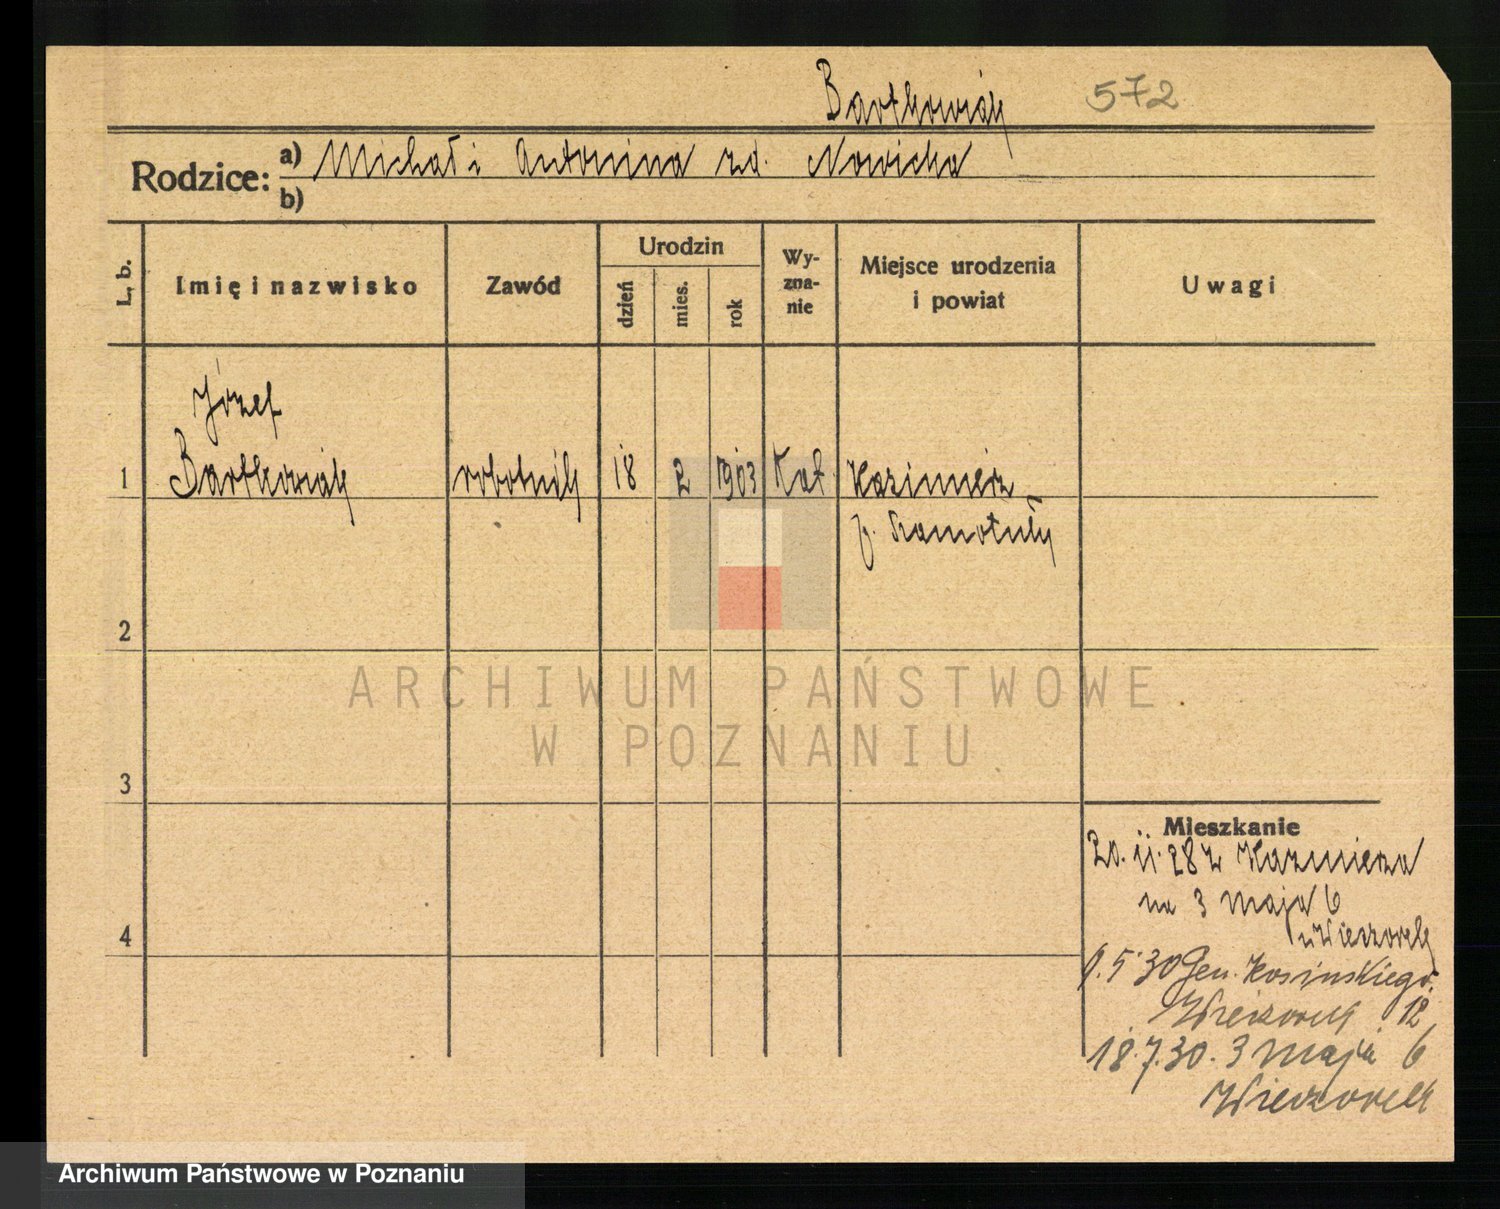 Bartkowiak 572
Rodzice: a) Michał i Antonina zd. Nowicka
b)
L. b.
Imię i nazwisko
Zawód
Urodzin
dzień
mies.
rok
Wy-
zna-
nie
Miejsce urodzenia
i powiat
Uwagi
Józef
1 Bartkowiak robotnik 18 2 1903 Kat. Kazimierz
p. Szamotuły
2
3
4
ARCHIWUM PAŃSTWOWE
W POZNANIU
Mieszkanie
20. 11. 28 z Kazmierza
na 3 maja 6
u Wieczorek
1. 5. 30 Gen. Kosinskiego
Wieczorek 12
18. 7. 30. 3 maja 6
Wieczorek
Archiwum Państwowe w Poznaniu